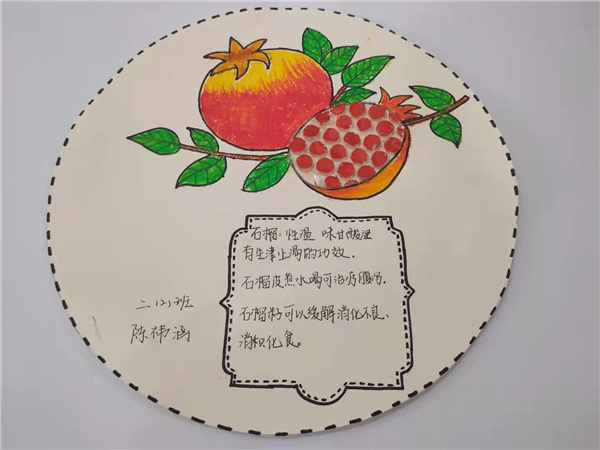 石榴:性温 味甘酸涩
有生津止渴的功效.
石榴皮煮水喝可治疗腹泻.
石榴籽可以缓解消化不良、
消积化食。
二(2)班
陈祎涵